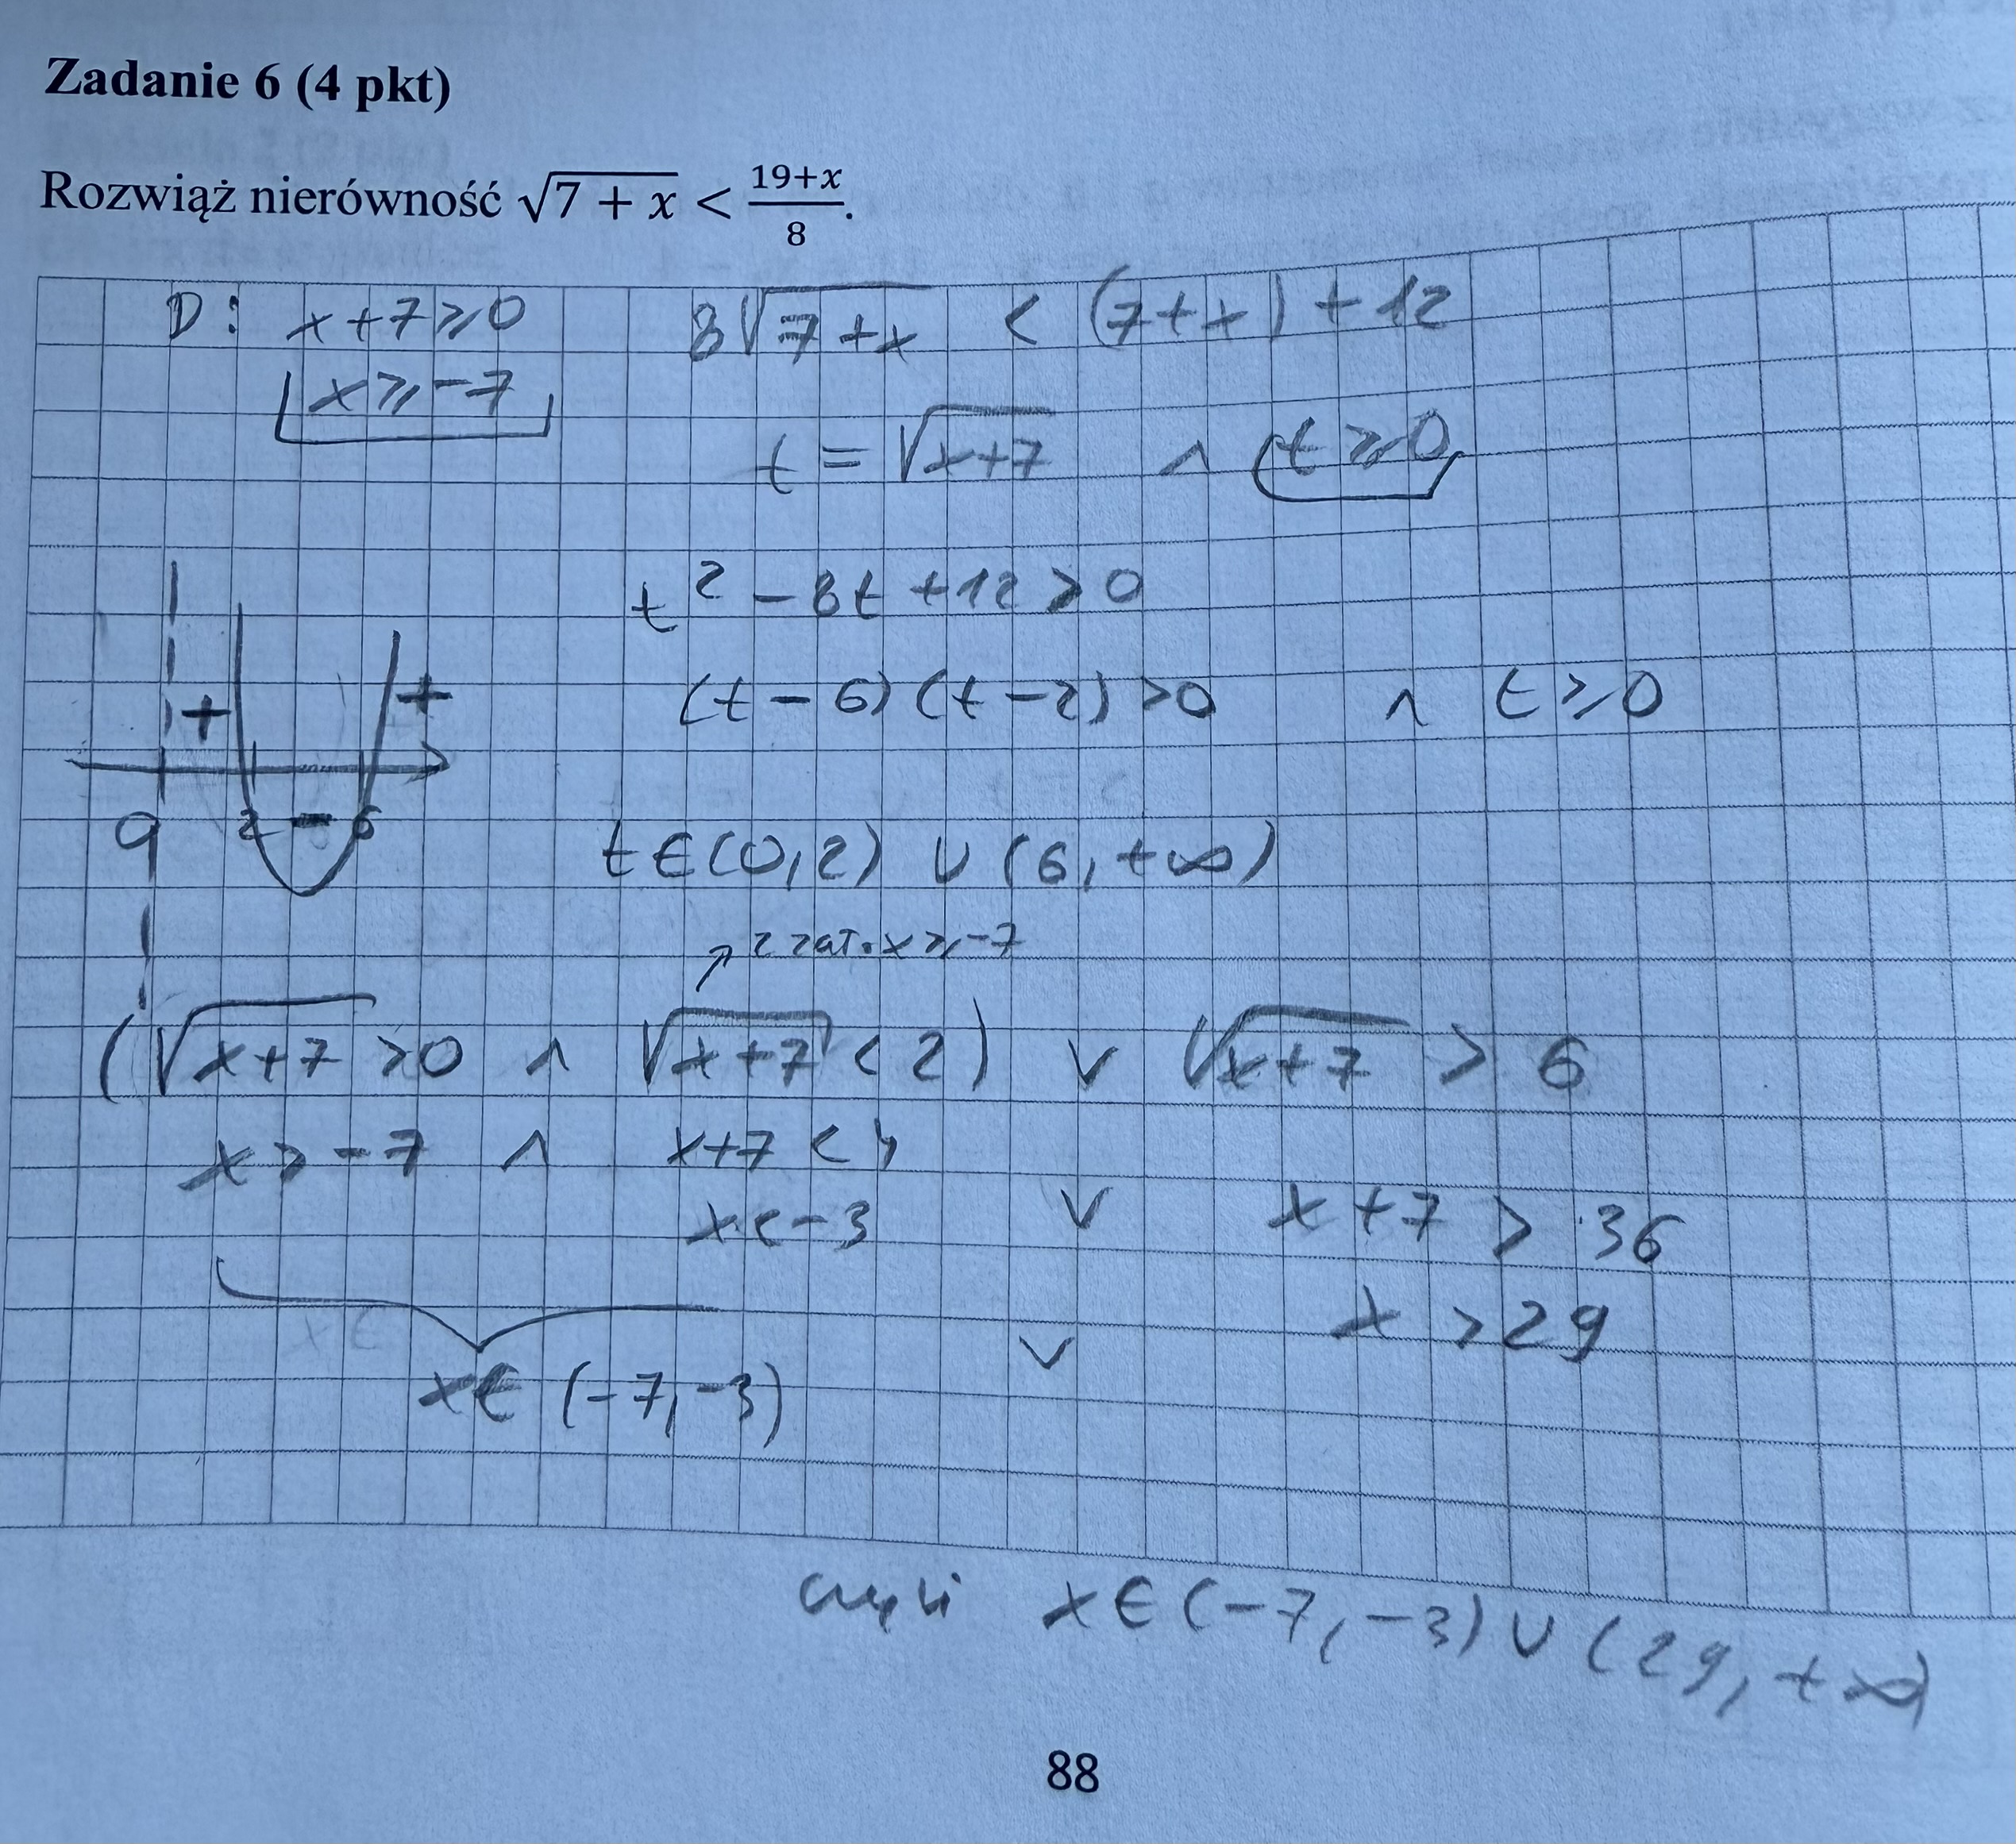 Zadanie 6 (4 pkt)
Rozwiąż nierówność √(7 + x) < (19+x)/8.
D: x+7⩾0
x⩾-7
8√(7+x) < (7+x)+12
t = √(x+7) ∧ t⩾0
t² - 8t + 12 > 0
(t-6)(t-2)>0 ∧ t⩾0
+ +
9 2 - 6
t∈(0,2) ∪ (6,+∞)
↗ z zał. x⩾-7
(√(x+7) >0 ∧ √(x+7) < 2) ∨ √(x+7) > 6
x>-7 ∧ x+7 < 4
x<-3 ∨ x+7 > 36
x >29
x∈ (-7,-3) ∨
czyli x∈(-7,-3)∪(29,+∞)
88